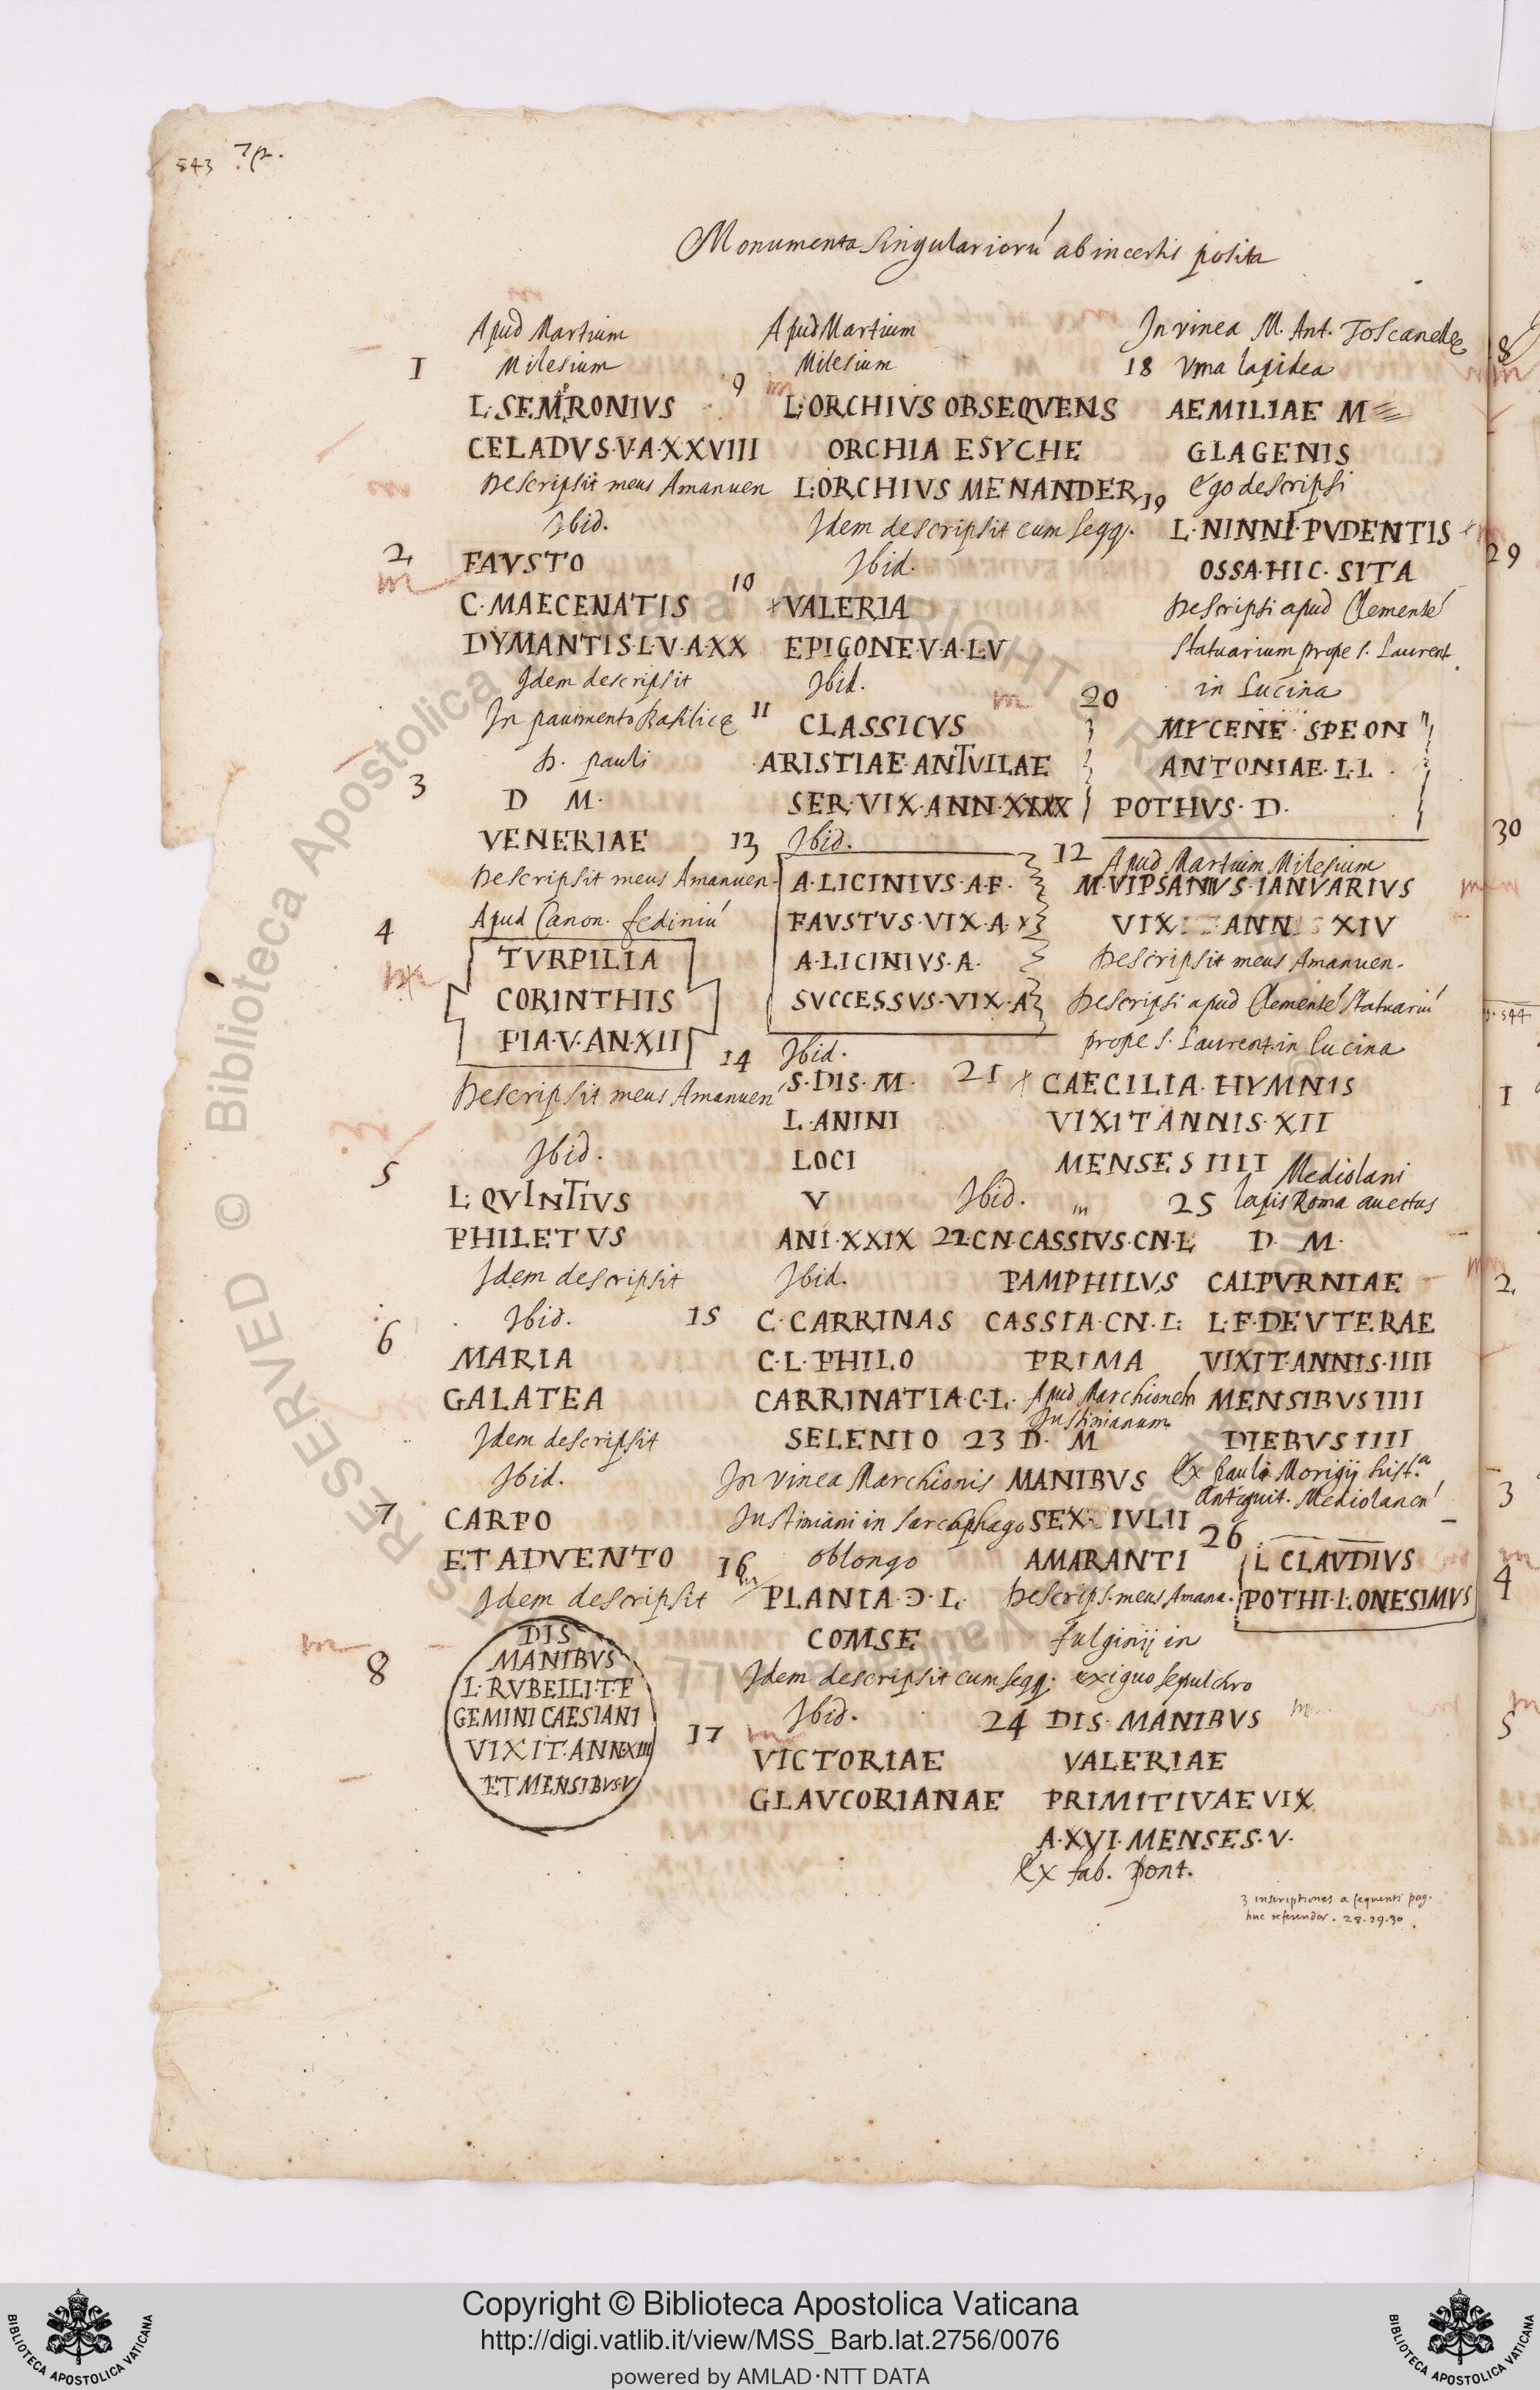 543 72.
Monumenta Singulariorú ab incertis posita
Apud Martium
1 Milesium
L. SEMPRONIVS
CELADVS·V·A·XXVIII
Descripsit meus Amanuen
Ibid.
2 FAVSTO
C·MAECENATIS
DYMANTIS·L·V·A·XX
Idem descripsit
In pavimento Basilicę
D. pauli
3 D M·
VENERIAE
Descripsit meus Amanuen-
4 Apud Canon. fediniú
TVRPILIA
CORINTHIS
PIA·V·AN·XII
Descripsit meus Amanuen
Ibid.
5
L. QVINTIVS
PHILETVS
Idem descripsit
Ibid.
6 MARIA
GALATEA
Idem descripsit
Ibid.
7 CARPO
ET ADVENTO
Idem descripsit
8 DIS
MANIBVS
L·RVBELLI·T·F
GEMINI CAESIANI
VIXIT·ANN·XIII
ET MENSIBVS·V
Apud Martium
Milesium
9 L. ORCHIVS OBSEQVENS
ORCHIA ESYCHE
L. ORCHIVS MENANDER
Idem descripsit cum seqq.
Ibid.
10 VALERIA
EPIGONE·V·A·L·V
Ibid.
11 CLASSICVS
ARISTIAE·ANTVILAE
SER·VIX·ANN·XXXX
13 Ibid.
A·LICINIVS·A·F·
FAVSTVS·VIX·A·X
A·LICINIVS·A·
SVCCESSVS·VIX·A
14 Ibid.
S·DIS·M·
L·ANINI
LOCI
V
ANI·XXIX
Ibid.
15 C·CARRINAS
C·L·PHILO
CARRINATIA·C·L·
SELENIO
In vinea Marchionis
Justiniani in sarcophago
oblongo
16 PLANIA·Ɔ·L·
COMSE
Idem descripsit cum seqq.
Ibid.
17
VICTORIAE
GLAVCORIANAE
In vinea M. Ant. Toscanellę
18 Vrna lapidea
AEMILIAE M
GLAGENIS
19 Ego descripsi
L·NINNI·PVDENTIS
OSSA·HIC·SITA
Descripsi apud Clementé
statuarium prope S. Laurent.
in Lucina
20
MYCENE·SPEON
ANTONIAE·L·L·
POTHVS·D·
12 Apud Martium Milesium
M·VIPSANIVS·IANVARIVS
VIX ANN XIV
Descripsit meus Amanuen.
Descripsi apud Clementé Statuariú
prope S. Laurent. in lucina
21 CAECILIA·HYMNIS
VIXIT ANNIS·XII
MENSES IIII
Ibid.
22 CN·CASSIVS·CN·L
PAMPHILVS
CASSIA·CN·L:
PRIMA
Apud Marchionem
Justinianum
23 D· M
MANIBVS
SEX· IVLII
AMARANTI
Descrips. meus Amana.
fulginij in
exiguo sepulchro
24 DIS·MANIBVS
VALERIAE
PRIMITIVAE VIX
A·XVI·MENSES·V·
Ex fab. Pont.
Mediolani
25 lapis Roma auectus
D· M·
CALPVRNIAE
L·F·DEVTERAE
VIXIT·ANNIS·IIII
MENSIBVS IIII
DIEBVS IIII
Ex Pauli Morigij hist.a
Antiquit. Mediolanen
26
L CLAVDIVS
POTHI·L·ONESIMVS
3 inscriptiones a sequenti pag.
huc referendae. 28.29.30.
28
29
30
p. 544
1
2
3
4
5
Copyright © Biblioteca Apostolica Vaticana
http://digi.vatlib.it/view/MSS_Barb.lat.2756/0076
powered by AMLAD·NTT DATA
BIBLIOTECA APOSTOLICA VATICANA
BIBLIOTECA APOSTOLICA VATICANA